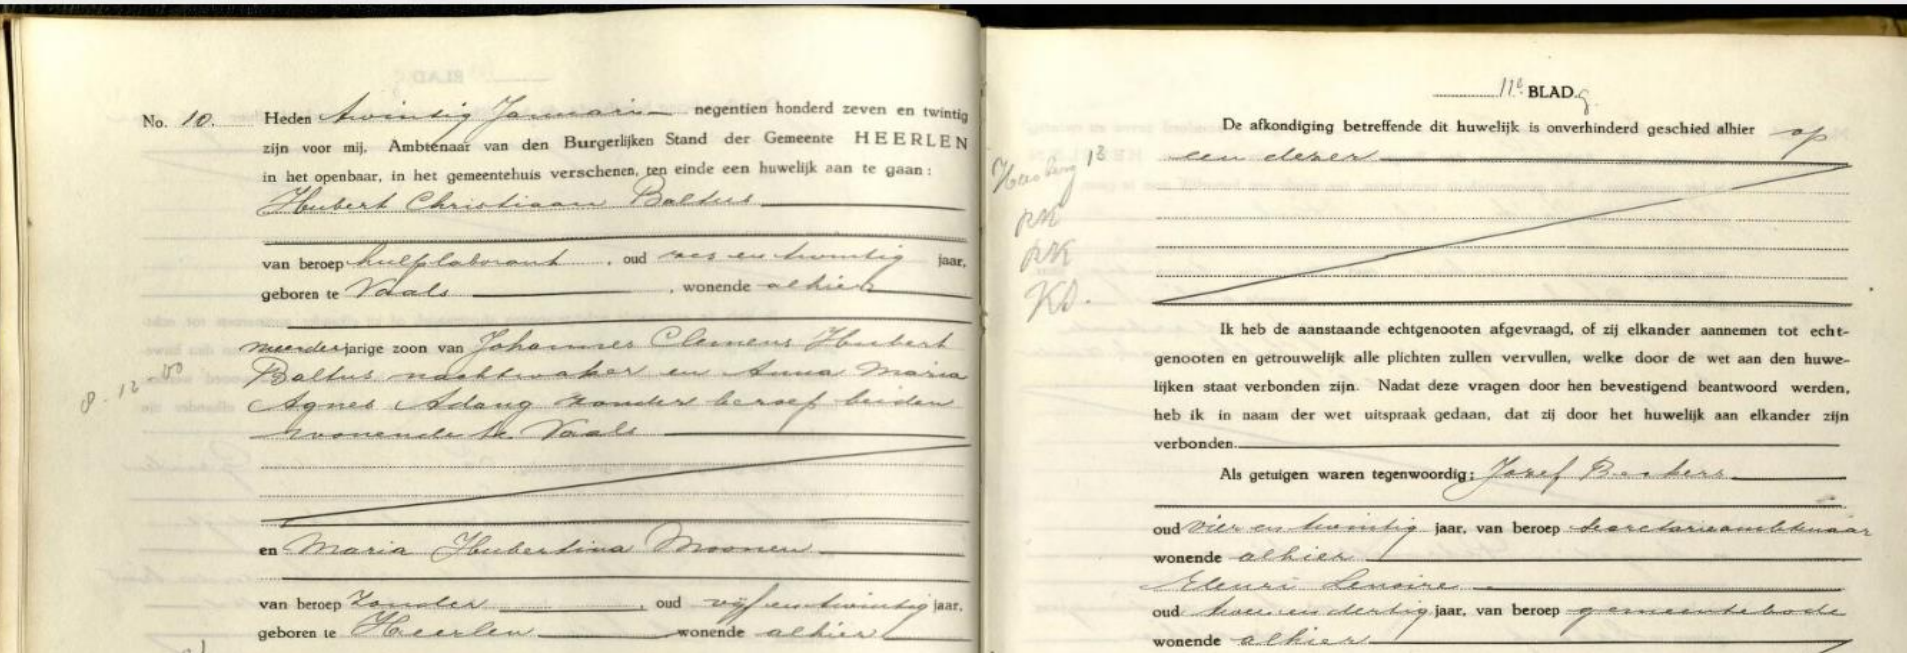 No. 10. Heden twintig Januari negentien honderd zeven en twintig
zijn voor mij, Ambtenaar van den Burgerlijken Stand der Gemeente HEERLEN
in het openbaar, in het gemeentehuis verschenen, ten einde een huwelijk aan te gaan:
Hubert Christiaan Baltus
van beroep hulplaborant, oud zes en twintig jaar,
geboren te Vaals, wonende alhier
meerderjarige zoon van Johannes Clemens Hubert
Baltus nachtwaker en Anna Maria
Agnes Adang zonder beroep beiden
wonende te Vaals
en Maria Hubertina Moonen
van beroep zonder, oud vijf en twintig jaar,
geboren te Heerlen wonende alhier
8-12
11e BLAD.
De afkondiging betreffende dit huwelijk is onverhinderd geschied alhier op
een dezer
13
RK
RK
Ik heb de aanstaande echtgenooten afgevraagd, of zij elkander aannemen tot echt-
genooten en getrouwelijk alle plichten zullen vervullen, welke door de wet aan den huwe-
lijken staat verbonden zijn. Nadat deze vragen door hen bevestigend beantwoord werden,
heb ik in naam der wet uitspraak gedaan, dat zij door het huwelijk aan elkander zijn
verbonden.
Als getuigen waren tegenwoordig: Jozef Beckers
oud vier en twintig jaar, van beroep secretarieambtenaar
wonende alhier
Henri Lenoire
oud twee en dertig jaar, van beroep gemeentebode
wonende alhier